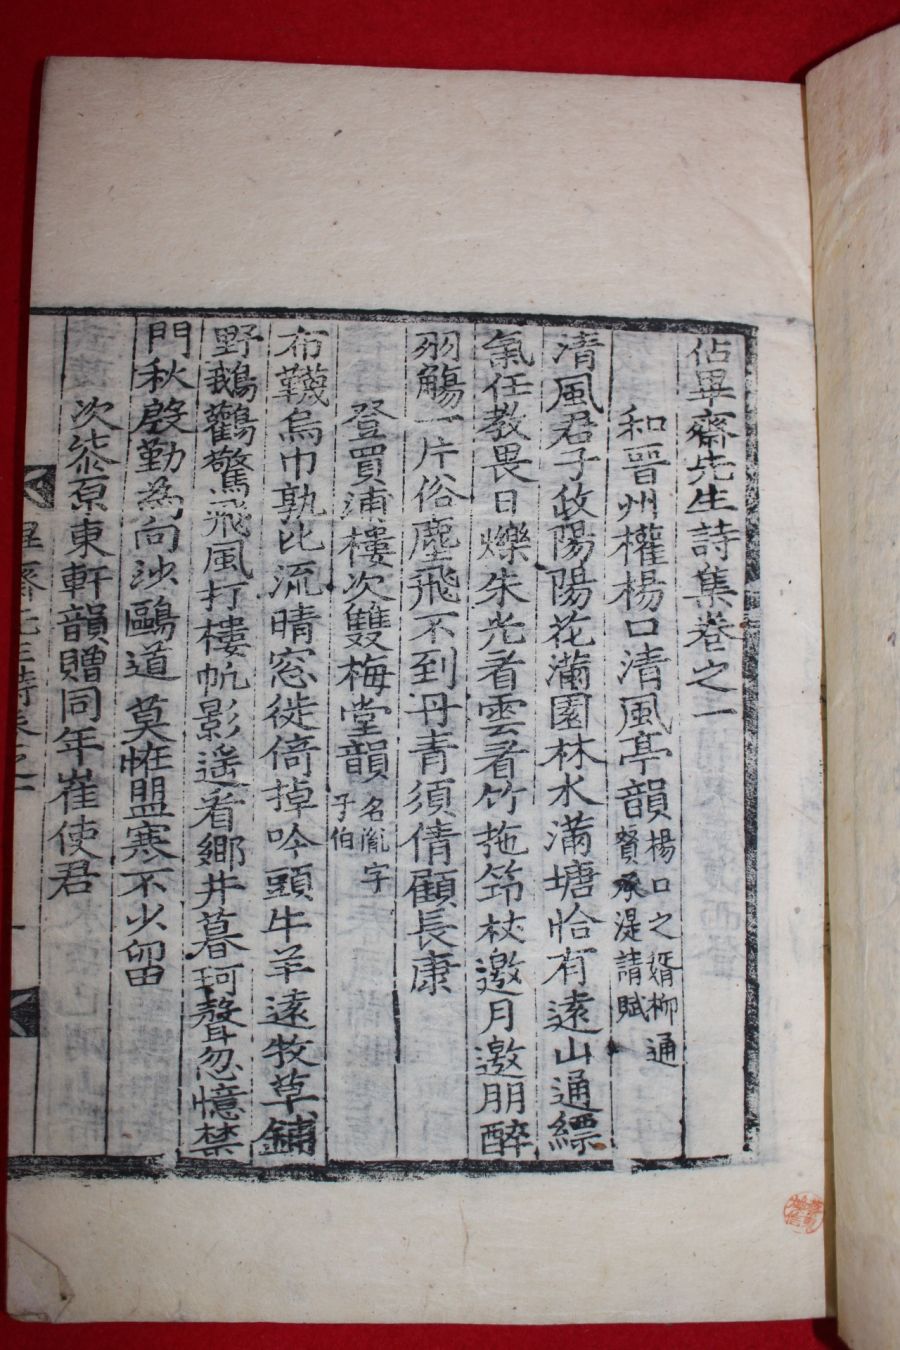 佔畢齋先生詩集卷之一
和晋州權楊口清風亭韻
楊口之婿柳通
贊承湜請賦
清風君子政陽陽花滿園林水滿塘恰有遠山通縹
氣任教畏日爍朱光看雲看竹拖筇杖邀月邀朋醉
羽觴一片俗塵飛不到丹青須倩顧長康
登買浦樓次雙梅堂韻
名胤字
子伯
布韈烏巾孰比流晴窓徙倚掉吟頭牛羊遠牧草鋪
野鵝鸛驚飛風打樓帆影遥看鄉井暮珂聲忽憶禁
門秋慇勤為向沙鷗道莫恠盟寒不少留
次 原東軒韻贈同年崔使君
畢齋先生詩卷之一